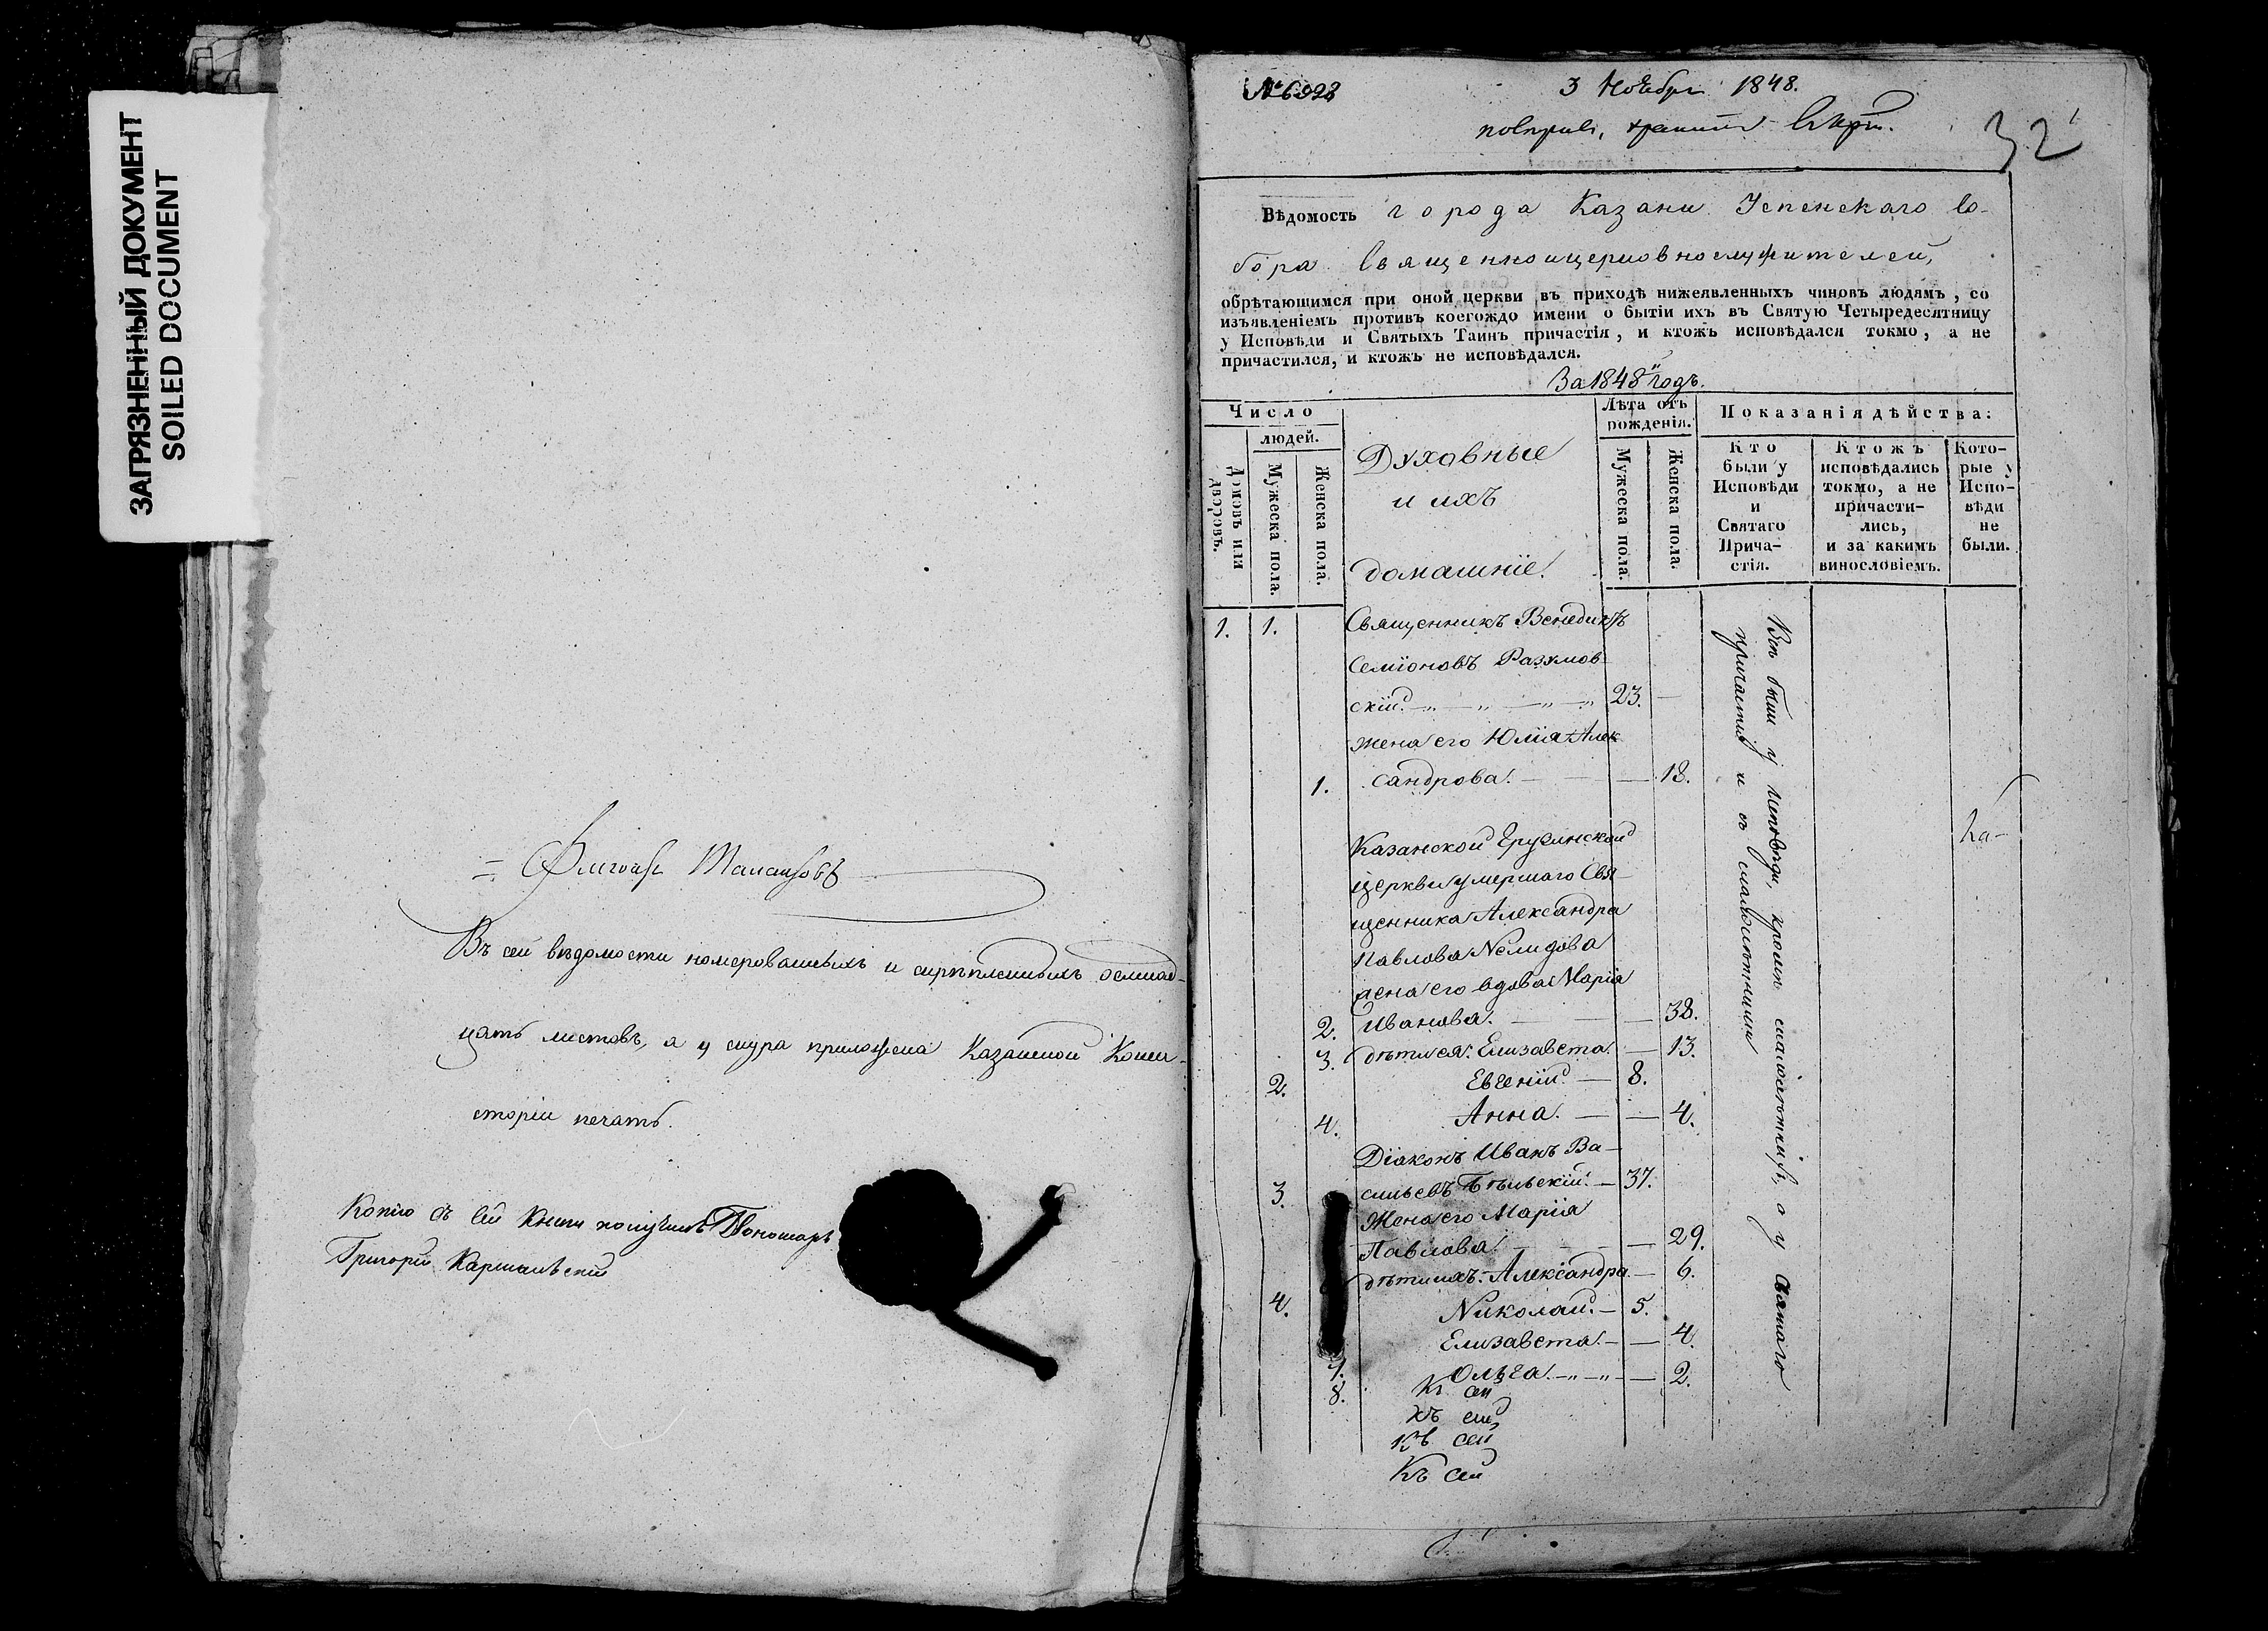 ЗАГРЯЗНЕННЫЙ ДОКУМЕНТ
SOILED DOCUMENT
Въ сей вѣдомости номерованныхъ и скрѣпленныхъ осмнад-
цать листовъ, а у снура приложена Казанской Конси-
сторіи печать.
Копію съ сей книги получилъ Пономарь
Григорій
№ 6928
3 Ноября 1848.
32
Вѣдомость города Казани Успенскаго Со-
бора Священноицерковнослужителей,
обрѣтающимся при оной церкви въ приходѣ нижеявленныхъ чиновъ людямъ, со
изъявленіемъ противъ коегождо имени о бытіи ихъ въ Святую Четыредесятницу
у Исповѣди и Святыхъ Таинъ причастія, и ктожъ исповѣдался токмо, а не
причастился, и ктожъ не исповѣдался.
За 1848й годъ.
Число
людей.
Домовъ или дворовъ.
Мужеска пола.
Женска пола.
Духовные
и ихъ
домашніе.
Лѣта отъ рожденія.
Мужеска пола.
Женска пола.
Показанія дѣйства:
Кто были у Исповѣди и Святаго Причастія.
Ктожъ исповѣдались токмо, а не причасти-лись, и за какимъ винословіемъ.
Кото-рые у Испо-вѣди не были.
1. 1. Священникъ Венедиктъ
Семіоновъ Разумов-
скій. 23.
жена его Юлія Алек-
1. сандрова. 18.
Казанской Грузинской
церкви умершаго Свя-
щенника Александра
Павлова Нелидова
жена его вдова Марія
2. Иванова. 38.
3. дѣти ея: Елизавета. 13.
2. Евгеній. 8.
4. Анна. 4.
Діаконъ Иванъ Ва-
3. сильевъ Бѣльскій. 37.
Жена его Марія
Павлова. 29.
дѣти ихъ: Александра. 6.
4. Николай. 5.
Елизавета. 4.
7. Ольга. 2.
8. Къ сей
Къ сей
Къ сей
Къ сей
Всѣ были у исповѣди, кромѣ малолѣтнихъ, а у святаго
причастія и съ малолѣтними